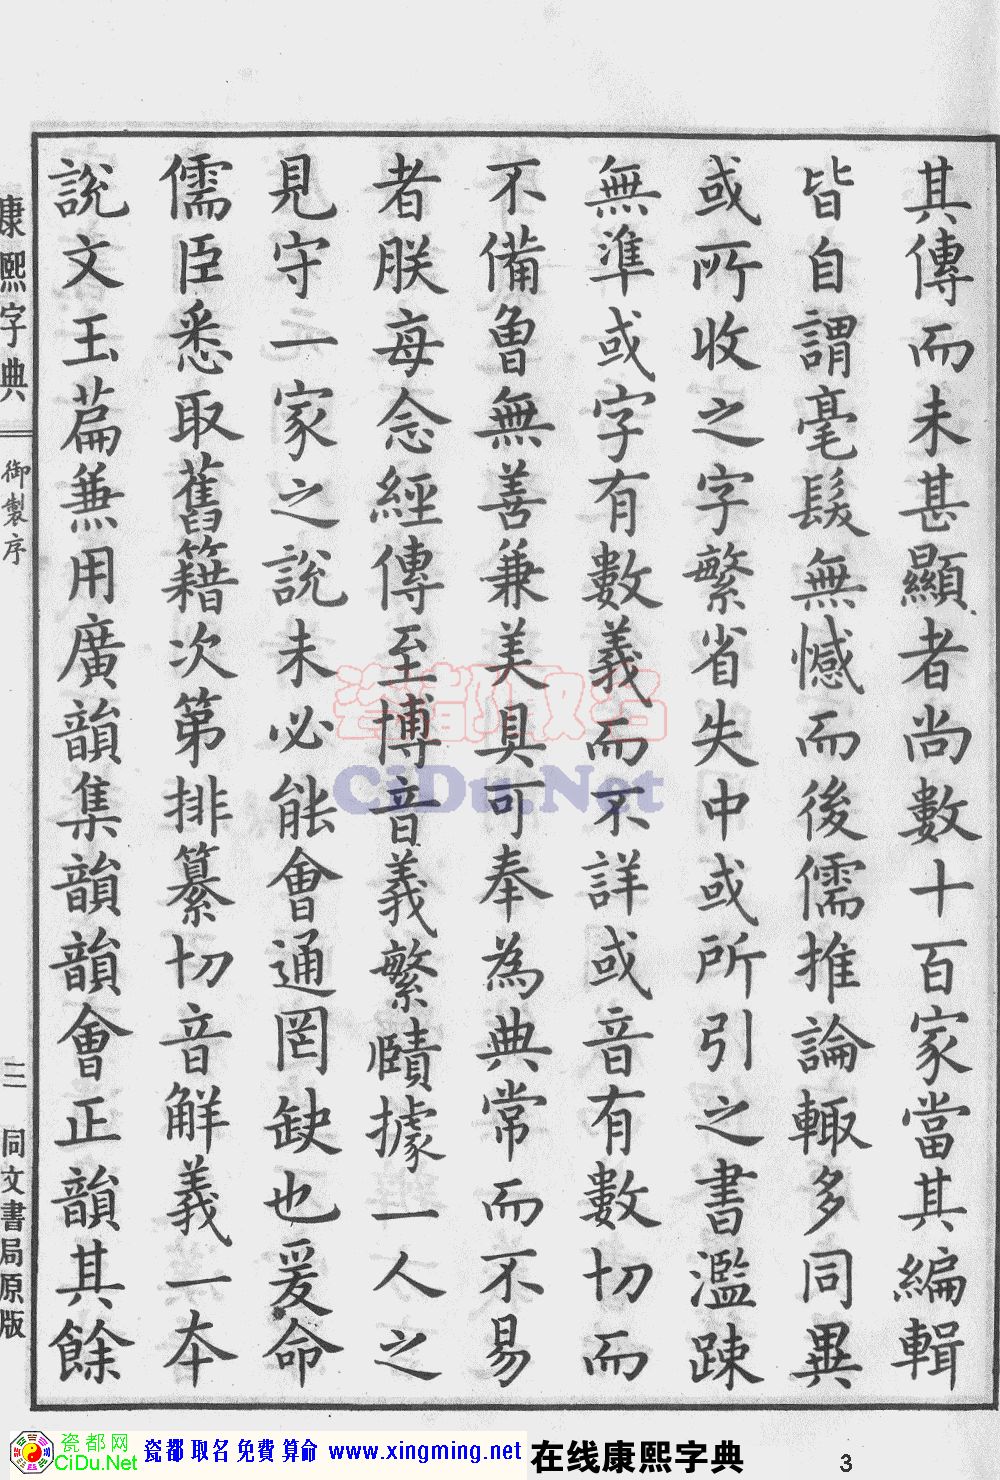 其傳而未甚顯者尚數十百家當其編輯
皆自謂毫髮無憾而後儒推論輙多同異
或所收之字繁省失中或所引之書濫踈
無準或字有數義而不詳或音有數切而
不備曾無善兼美具可奉為典常而不易
者朕每念經傳至博音義繁賾據一人之
見守一家之說未必能會通罔缺也爰命
儒臣悉取舊籍次第排纂切音解義一本
說文玉篇兼用廣韻集韻韻會正韻其餘
康熙字典 御製序 三 同文書局原版
瓷都取名
CiDu.Net
瓷都网
CiDu.Net
瓷都取名免費算命 www.xingming.net 在线康熙字典 3